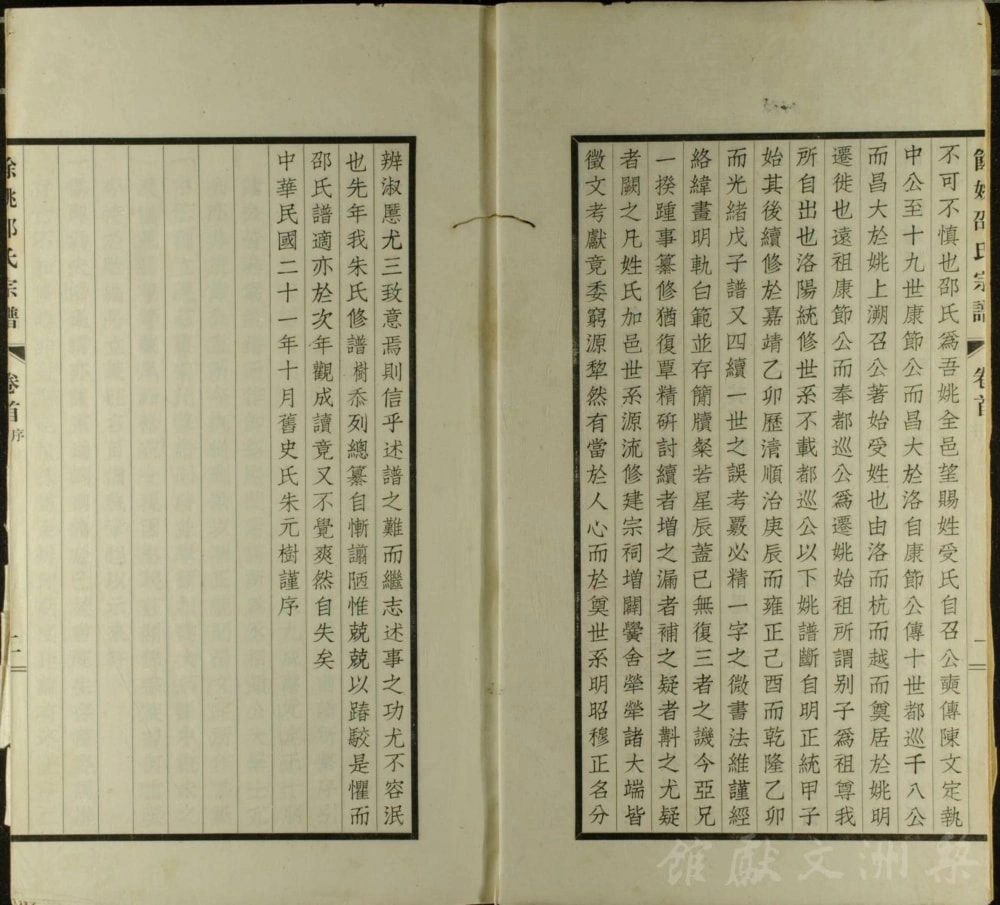 餘姚邵氏宗譜 卷首 一
不可不慎也邵氏爲吾姚全邑望賜姓受氏自召公奭傳陳文定執
中公至十九世康節公而昌大於洛自康節公傳十世都巡千八公
而昌大於姚上溯召公著始受姓也由洛而杭而越而奠居於姚明
遷徙也遠祖康節公而奉都巡公爲遷姚始祖所謂別子爲祖尊我
所自出也洛陽統修世系不載都巡公以下姚譜斷自明正統甲子
始其後續修於嘉靖乙卯歷清順治庚辰而雍正己酉而乾隆乙卯
而光緒戊子譜又四續一世之誤考覈必精一字之微書法維謹經
絡緯畫明軌白範並存簡牘粲若星辰蓋已無復三者之譏今亞兄
一揆踵事纂修猶復覃精硏討續者增之漏者補之疑者斠之尤疑
者闕之凡姓氏加邑世系源流修建宗祠增闢黌舍犖犖諸大端皆
徵文考獻竟委窮源犂然有當於人心而於奠世系明昭穆正名分
辨淑慝尤三致意焉則信乎述譜之難而繼志述事之功尤不容泯
也先年我朱氏修譜樹忝列總纂自慚謭陋惟兢兢以踳駮是懼而
邵氏譜適亦於次年觀成讀竟又不覺爽然自失矣
中華民國二十一年十月舊史氏朱元樹謹序
餘姚邵氏宗譜 卷首 序 二
梨洲文獻館